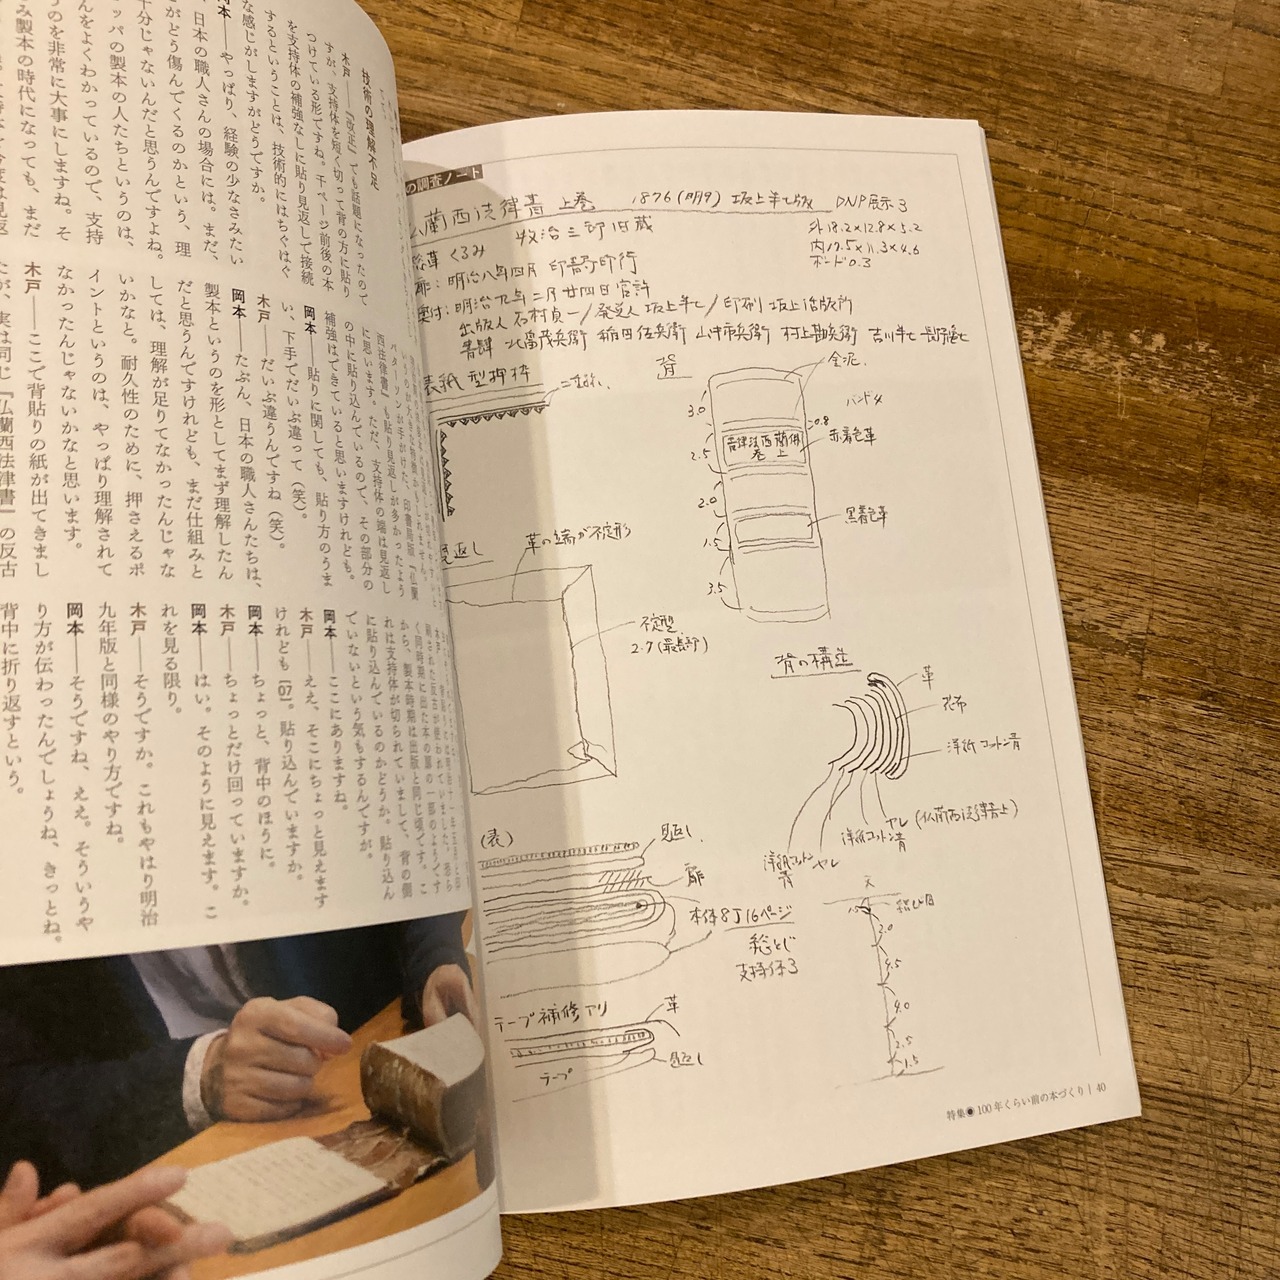 技術の理解不足
木戸――『改正』でも話題になったので
すが、支持体を短く切って背の方に貼り
つけている形ですね。千ページ前後の本
を支持体の補強なしに貼り見返しで接続
するということは、技術的にはちぐはぐ
な感じがしますがどうですか。
岡本――やっぱり、経験の少なさみたい
、日本の職人さんの場合には。まだ、
がどう傷んでくるのかという、理
十分じゃないんだと思うんですよね。
ッパの製本の人たちというのは、
んをよくわかっているので、支持
うのを非常に大事にしますね。そ
み製本の時代になっても、まだ
パターソンが手がけた、印書局版『仏蘭
西法律書』も貼り見返しが多かったよう
に思います。ただ、支持体の端は見返し
の中に貼り込んでいるので、その部分の
補強はできていると思いますけれども。
岡本――貼りに関しても、貼り方のうま
い、下手でだいぶ違って（笑）。
木戸――だいぶ違うんですね（笑）。
岡本――たぶん、日本の職人さんたちは、
製本というのを形としてまず理解したん
だと思うんですけれども、まだ仕組みと
しては、理解が足りてなかったんじゃな
いかなと。耐久性のために、押さえるポ
イントというのは、やっぱり理解されて
なかったんじゃないかなと思います。
木戸――ここで背貼りの紙が出てきまし
たが、実は同じ『仏蘭西法律書』の反古
く同時期に出た本の扉の一部のようです
から、製本時期は出版と同じ頃です。こ
れは支持体が切られていまして、背の側
に貼り込んでいるのかどうか。貼り込ん
でいないという気もするんですが。
岡本――ここにありますね。
木戸――ええ、そこにちょっと見えます
けれども［07］。貼り込んでいますか。
岡本――ちょっと、背中のほうに。
木戸――ちょっとだけ回っていますか。
岡本――はい。そのように見えます。こ
れを見る限り。
木戸――そうですか。これもやはり明治
九年版と同様のやり方ですね。
岡本――そうですね、ええ。そういうや
り方が伝わったんでしょうね、きっとね。
背中に折り返すという。
の調査ノート
仏蘭西法律書 上巻 1876(明9) 坂上半七版 DNP展示3
牧治三郎旧蔵
外18.2×12.8×5.2
内17.5×11.3×4.6
ボード0.3
総革くるみ
扉：明治八年四月 印書局印行
奥付：明治九年二月廿四日官許
出版人 石村貞一/発兌人 坂上半七/印刷 坂上活版所
書肆 北畠茂兵衛 稲田佐兵衛 山中市兵衛 村上勘兵衛 吉川半七
表紙 型押枠
背
金泥
バンド4
3.0
0.8
仏蘭西法律書
上巻
赤着色革
2.5
2.0
黒着色革
1.5
3.5
見返し
革の端が不定形
不定型
2.7(最長部)
背の構造
革
花布
洋紙コットン青
ヤレ(仏蘭西法律書上)
洋紙コットン青
ヤレ
洋紙コットン青
(表)
見返し
扉
本体8丁16ページ
総とじ
支持体3
天
1.5
2.0
4.5
4.0
2.5
1.5
テープ補修アリ
革
見返し
テープ
特集●100年くらい前の本づくり | 40